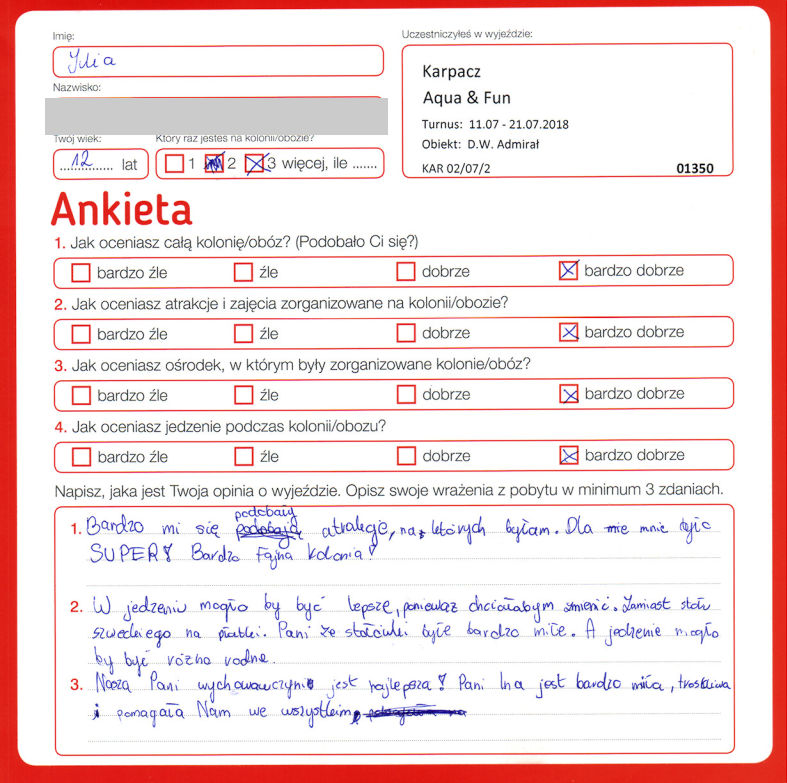 Imię:
Julia
Nazwisko:
Twój wiek:
12 lat
Który raz jesteś na kolonii/obozie?
1 2 3 więcej, ile .......
Uczestniczyłeś w wyjeździe:
Karpacz
Aqua & Fun
Turnus: 11.07 - 21.07.2018
Obiekt: D.W. Admirał
KAR 02/07/2 01350
Ankieta
1. Jak oceniasz całą kolonię/obóz? (Podobało Ci się?)
bardzo źle źle dobrze bardzo dobrze
2. Jak oceniasz atrakcje i zajęcia zorganizowane na kolonii/obozie?
bardzo źle źle dobrze bardzo dobrze
3. Jak oceniasz ośrodek, w którym były zorganizowane kolonie/obóz?
bardzo źle źle dobrze bardzo dobrze
4. Jak oceniasz jedzenie podczas kolonii/obozu?
bardzo źle źle dobrze bardzo dobrze
Napisz, jaka jest Twoja opinia o wyjeździe. Opisz swoje wrażenia z pobytu w minimum 3 zdaniach.
podobały
1. Bardzo mi się atrakcje, na których byłam. Dla mnie było
SUPER! Bardzo Fajna kolonia!
2. W jedzeniu mogło by być lepsze, ponieważ chciałabym zmienić. Zamiast stołu
szwedkiego na piatki. Pani ze stołówki były bardzo miłe. A jedzenie mogło
by być różno rodne.
3. Nasza Pani wychowawczyni jest najlepsza! Pani Ina jest bardzo miła, troskliwa
i pomagała Nam we wszystkim